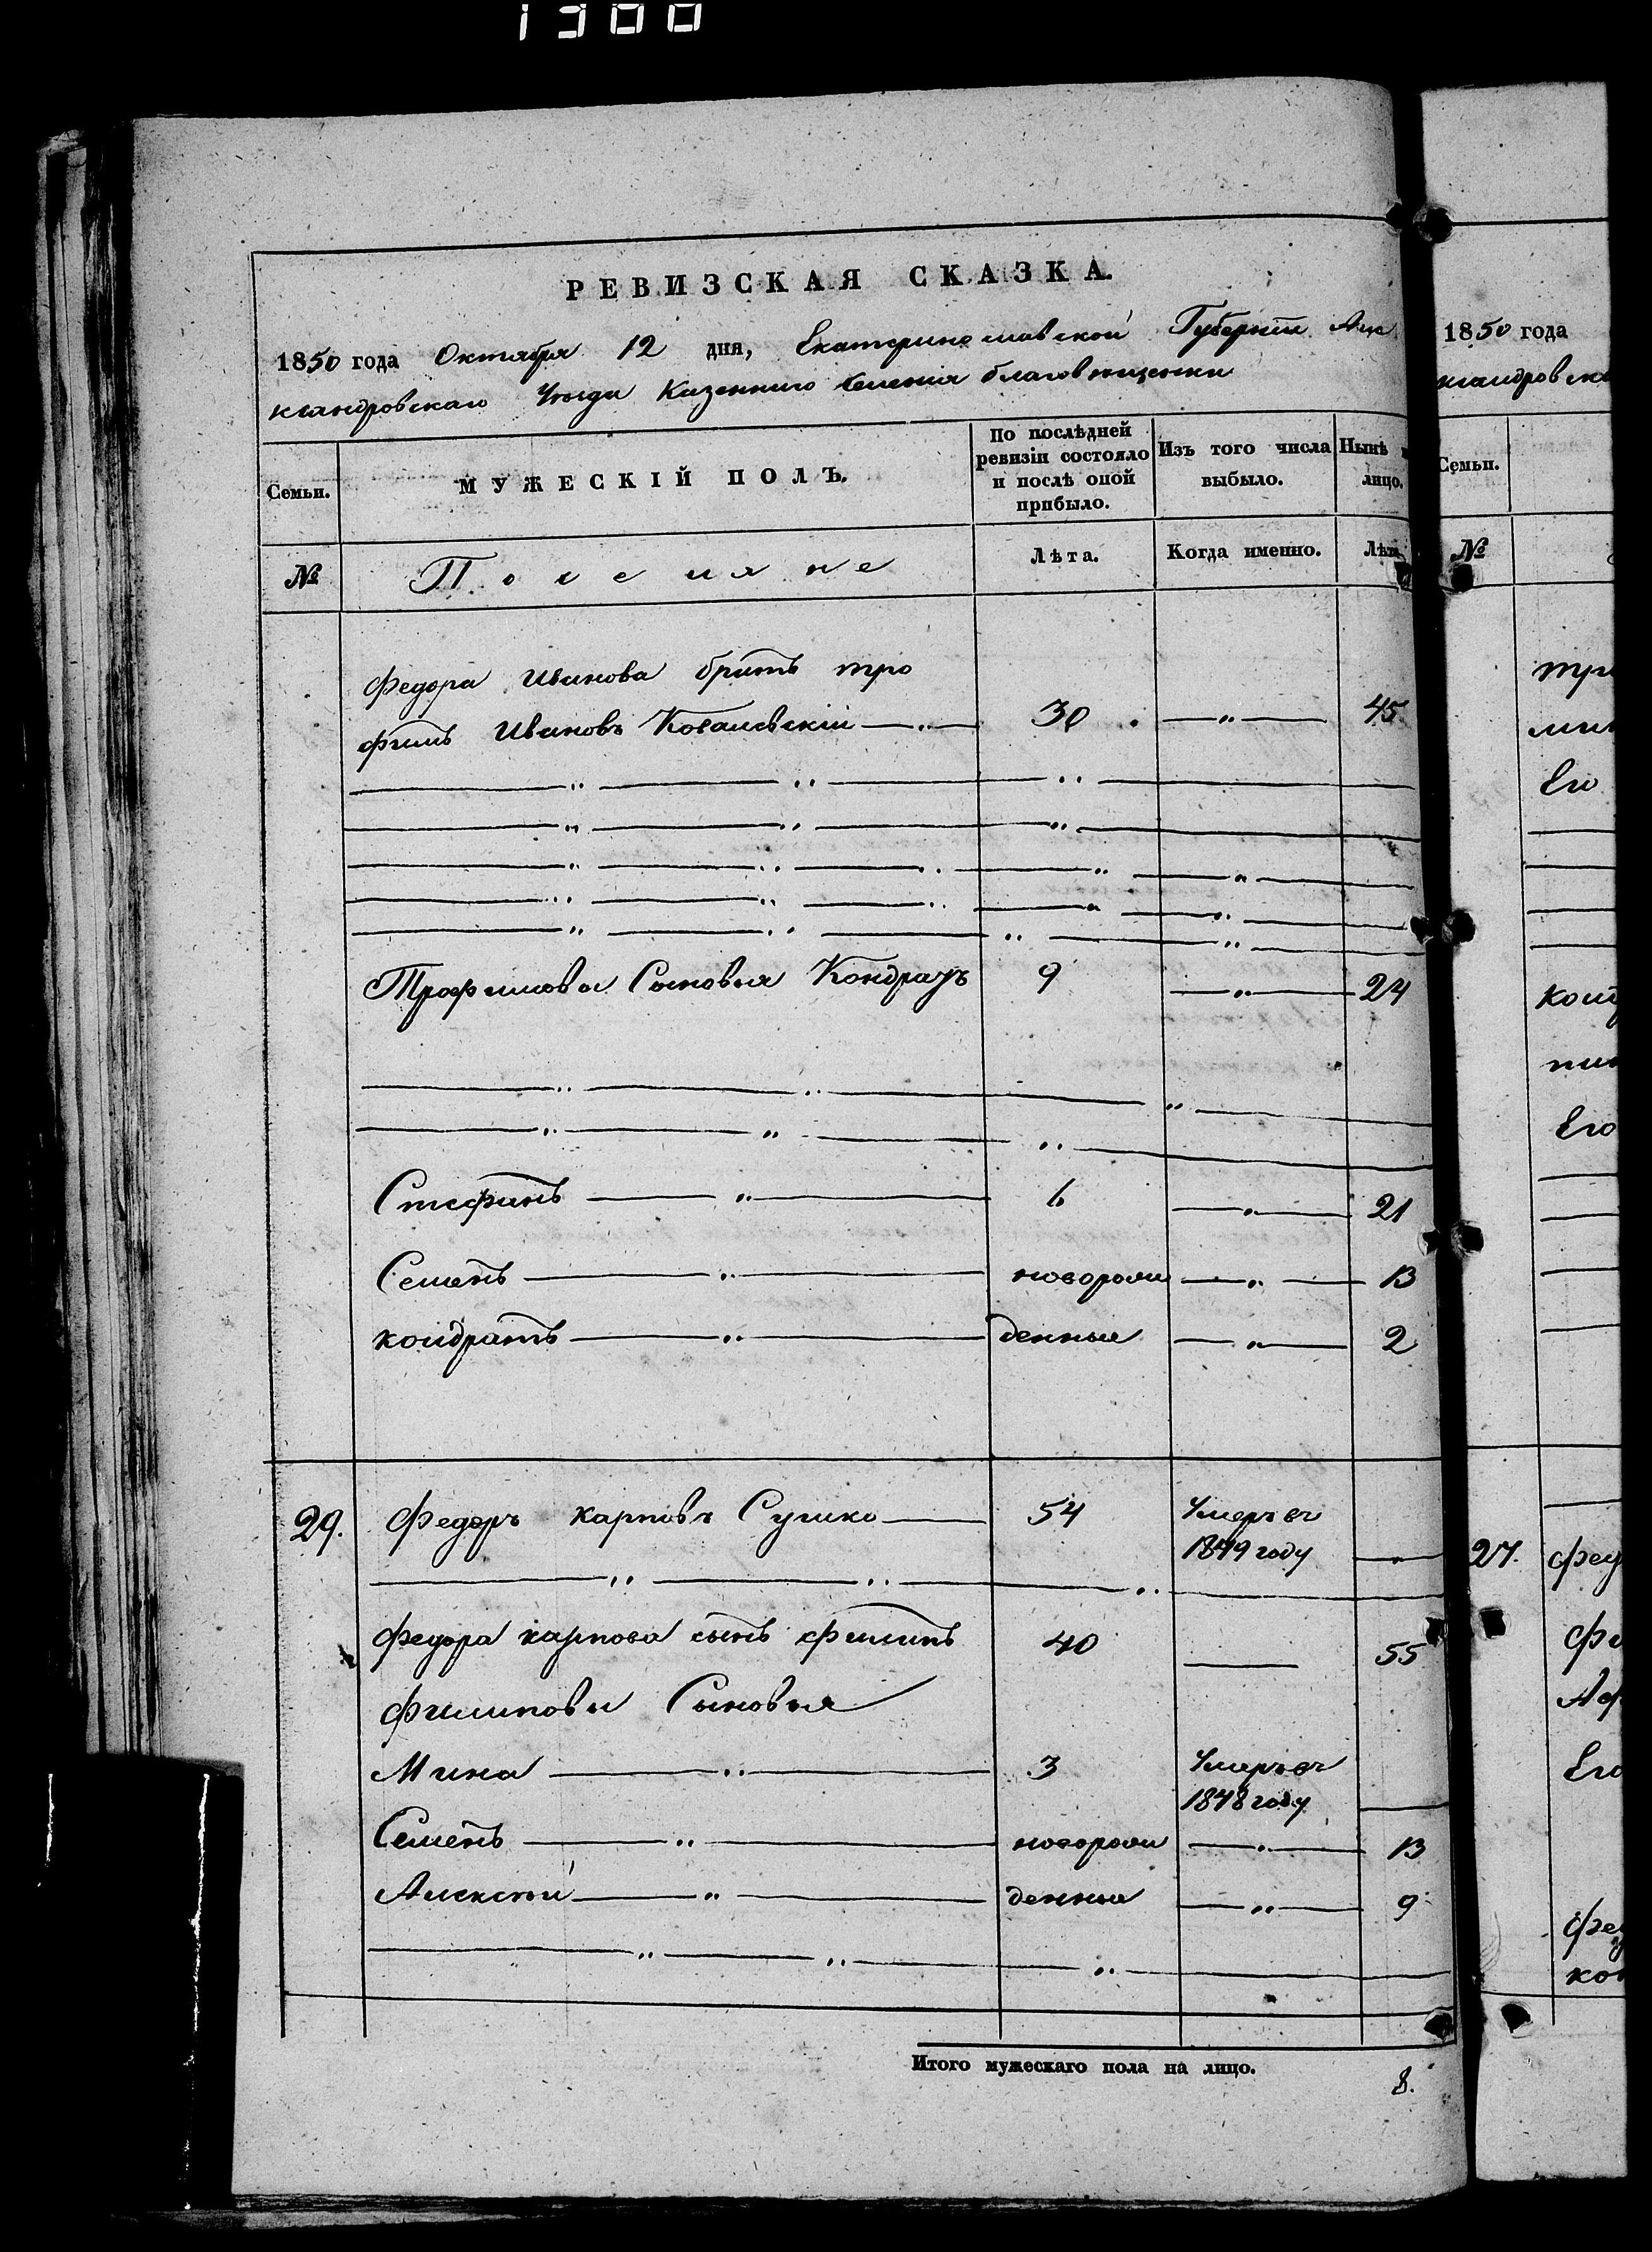 1300
РЕВИЗСКАЯ СКАЗКА.
1850 года Октября 12 дня, Екатеринославской Губернии Але
ксандровскаго Уѣзда Казеннаго Селенія благовѣщенки
Семьи.
МУЖЕСКІЙ ПОЛЪ.
По послѣдней ревизіи состояло и послѣ оной прибыло.
Изъ того числа выбыло.
Нынѣ лицо.
№
Поселяне
Лѣта.
Когда именно.
Лѣта
Федора Иванова братъ тро
фимъ Ивановъ Ковалевскій 30 45
Трофимовы Сыновья Кондратъ 9 24
Стефанъ 6 21
Семенъ новорож 13
кондратъ денные 2
29. Федоръ карповъ Сушко 54 Умеръ въ
1849 году
Федора карпова сынъ филипъ 40 55
Филиповы Сыновья
Мина 3 Умеръ въ
1848 году
Семенъ новорож 13
Алексѣй денные 9
Итого мужескаго пола на лицо. 8.
1850 года
ксандровска
Семьи.
№
Его
Его
27.